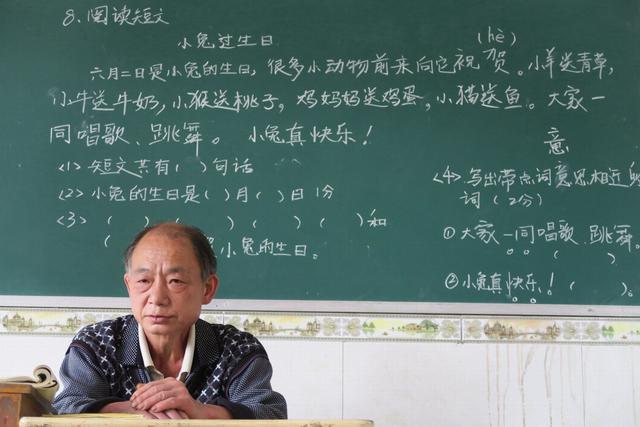 8. 阅读短文
小兔过生日
(hè)
六月二日是小兔的生日，很多小动物前来向它祝贺。小羊送青草，
小牛送牛奶，小猴送桃子，鸡妈妈送鸡蛋，小猫送鱼。大家一
同唱歌、跳舞。小兔真快乐！
<1> 短文共有( )句话
<2> 小兔的生日是( )月( )日 1分
<3> ( ) ( ) ( ) ( )和
( 小兔的生日。
意
<4> 写出带点词意思相近的
词 (2分)
① 大家一同唱歌、跳舞。
( )
② 小兔真快乐！( )。